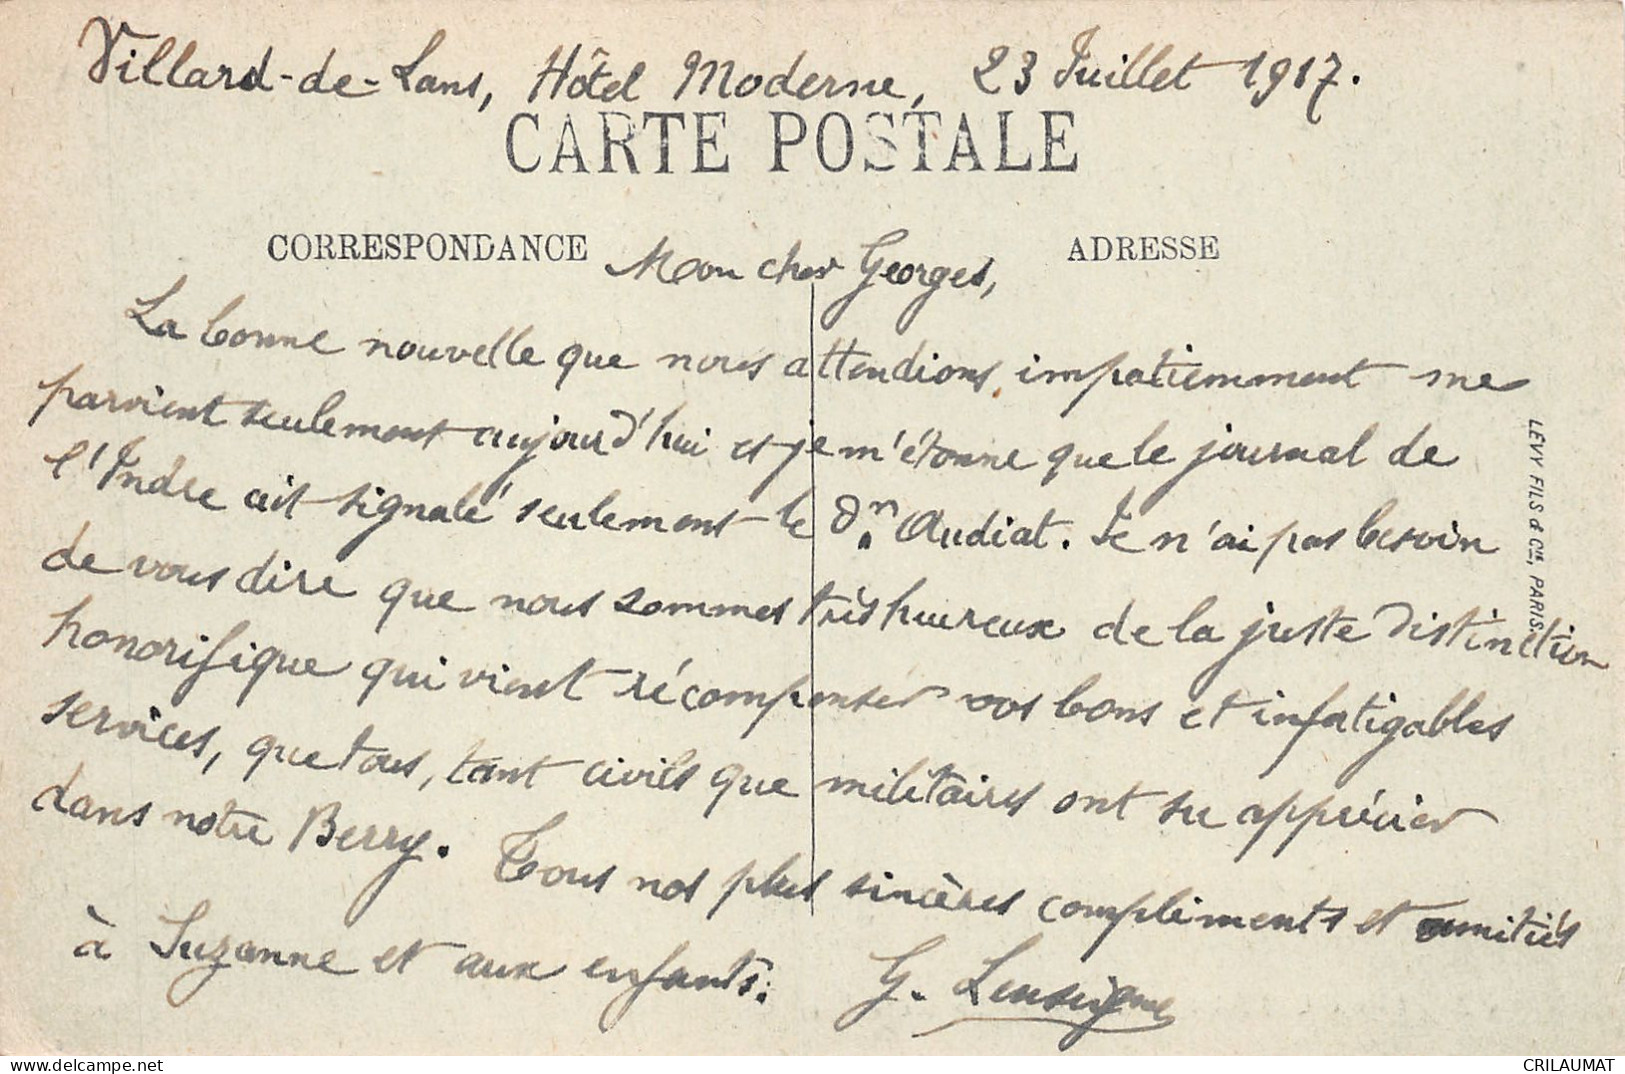 Villard-de-Lans, Hôtel Moderne, 23 Juillet 1917.
CARTE POSTALE
CORRESPONDANCE
ADRESSE
Mon cher Georges,
La bonne nouvelle que nous attendions impatiemment me
parvient seulement aujourd'hui et je m'étonne que le journal de
l'Indre ait signalé seulement le Dr Audiat. Je n'ai pas besoin
de vous dire que nous sommes très heureux de la juste distinction
honorifique qui vient récompenser vos bons et infatigables
services, que tous, tant civils que militaires ont su apprécier
dans notre Berry. Tous nos plus sincères compliments et amitiés
à Suzanne et aux enfants.
G. Lenseigne
LÉVY FILS & Cie, PARIS.
delcampe.net
CRILAUMAT